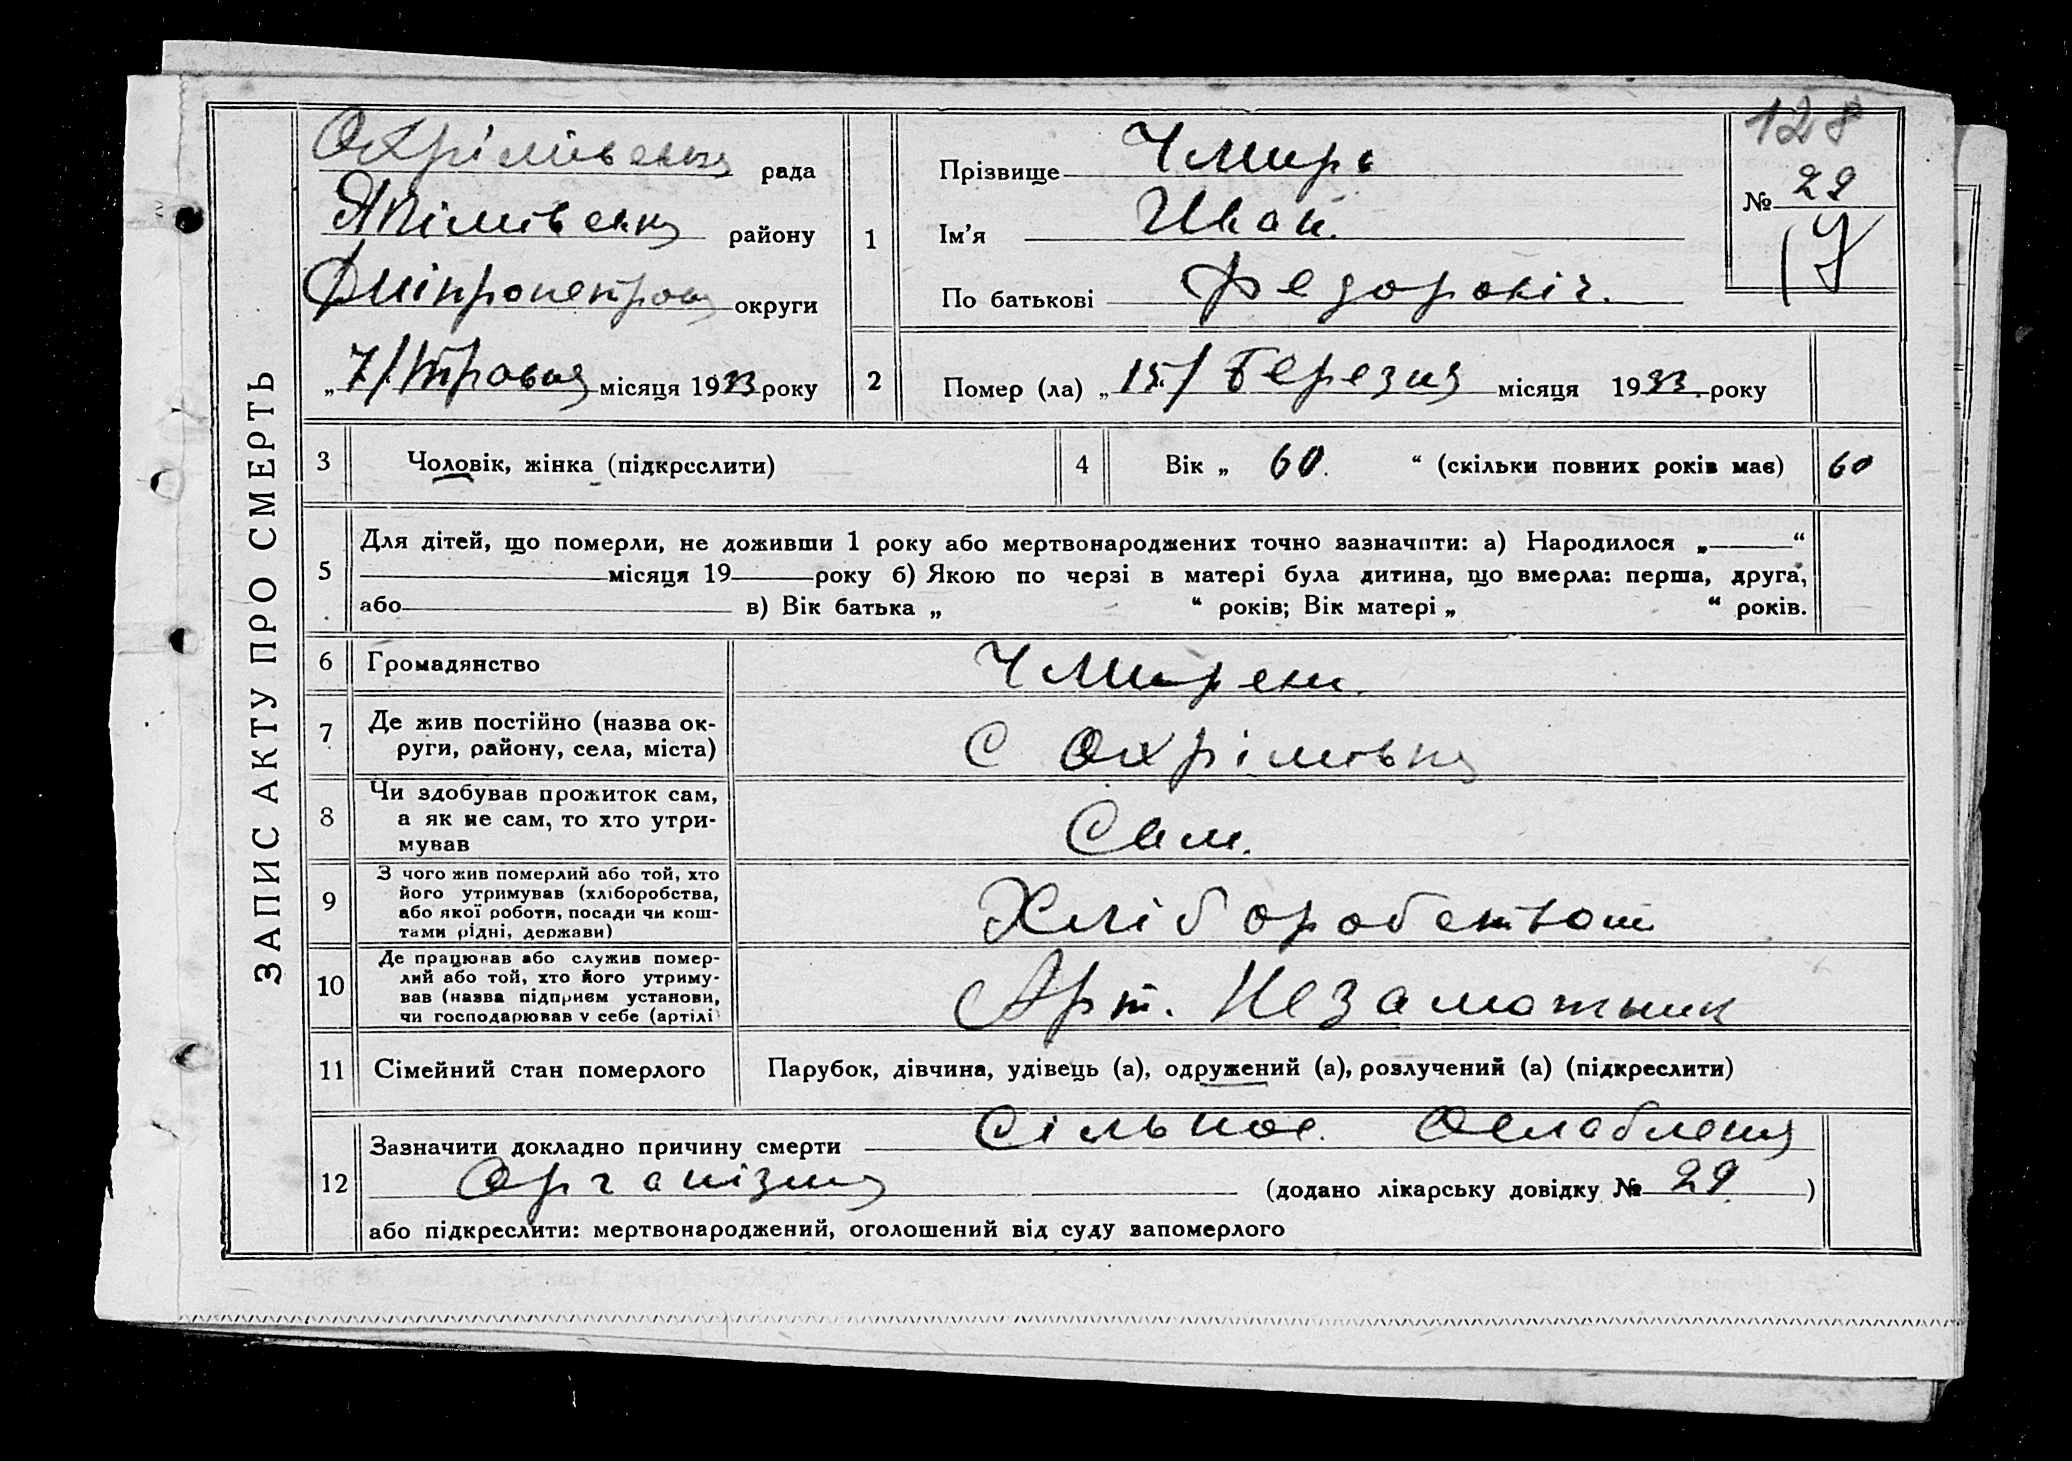 ЗАПИС АКТУ ПРО СМЕРТЬ
Охрімівська рада
Якімівська району
Дніпропетров округи
„7/травня місяця 1933 року
128
№ 29
1
Прізвище Чмирь
Ім’я Иван.
По батькові Федоровіч.
2
Помер (ла) „15/Березня місяця 1933 року
3
Чоловік, жінка (підкреслити)
4
Вік „ 60. “ (скільки повних років має)
60
5
Для дітей, що померли, не доживши 1 року або мертвонароджених точно зазначити: а) Народилося „ “
місяця 19 року б) Якою по черзі в матері була дитина, що вмерла: перша, друга,
або в) Вік батька „ “ років; Вік матері „ “ років.
6
Громадянство
7
Де жив постійно (назва ок-
руги, району, села, міста)
С Охрімівка
8
Чи здобував прожиток сам,
а як не сам, то хто утри-
мував
Сам.
9
З чого жив померлий або той, хто
його утримував (хліборобства,
або якої роботи, посади чи кош-
тами рідні, держави)
Хліборобством
10
Де працював або служив помер-
лий або той, хто його утриму-
вав (назва підприєм установи,
чи господарював у себе (артілі)
Арт. Незаможник
11
Сімейний стан померлого
Парубок, дівчина, удівець (а), одружений (а), розлучений (а) (підкреслити)
12
Зазначити докладно причину смерти Сільное Ослабления
Організма (додано лікарську довідку № 29. )
або підкреслити: мертвонароджений, оголошений від суду запомерлого